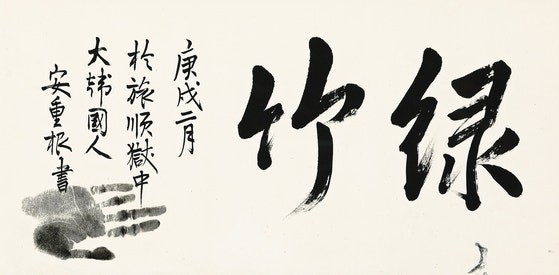 绿竹
庚戌二月
於旅順獄中
大韓國人
安重根書